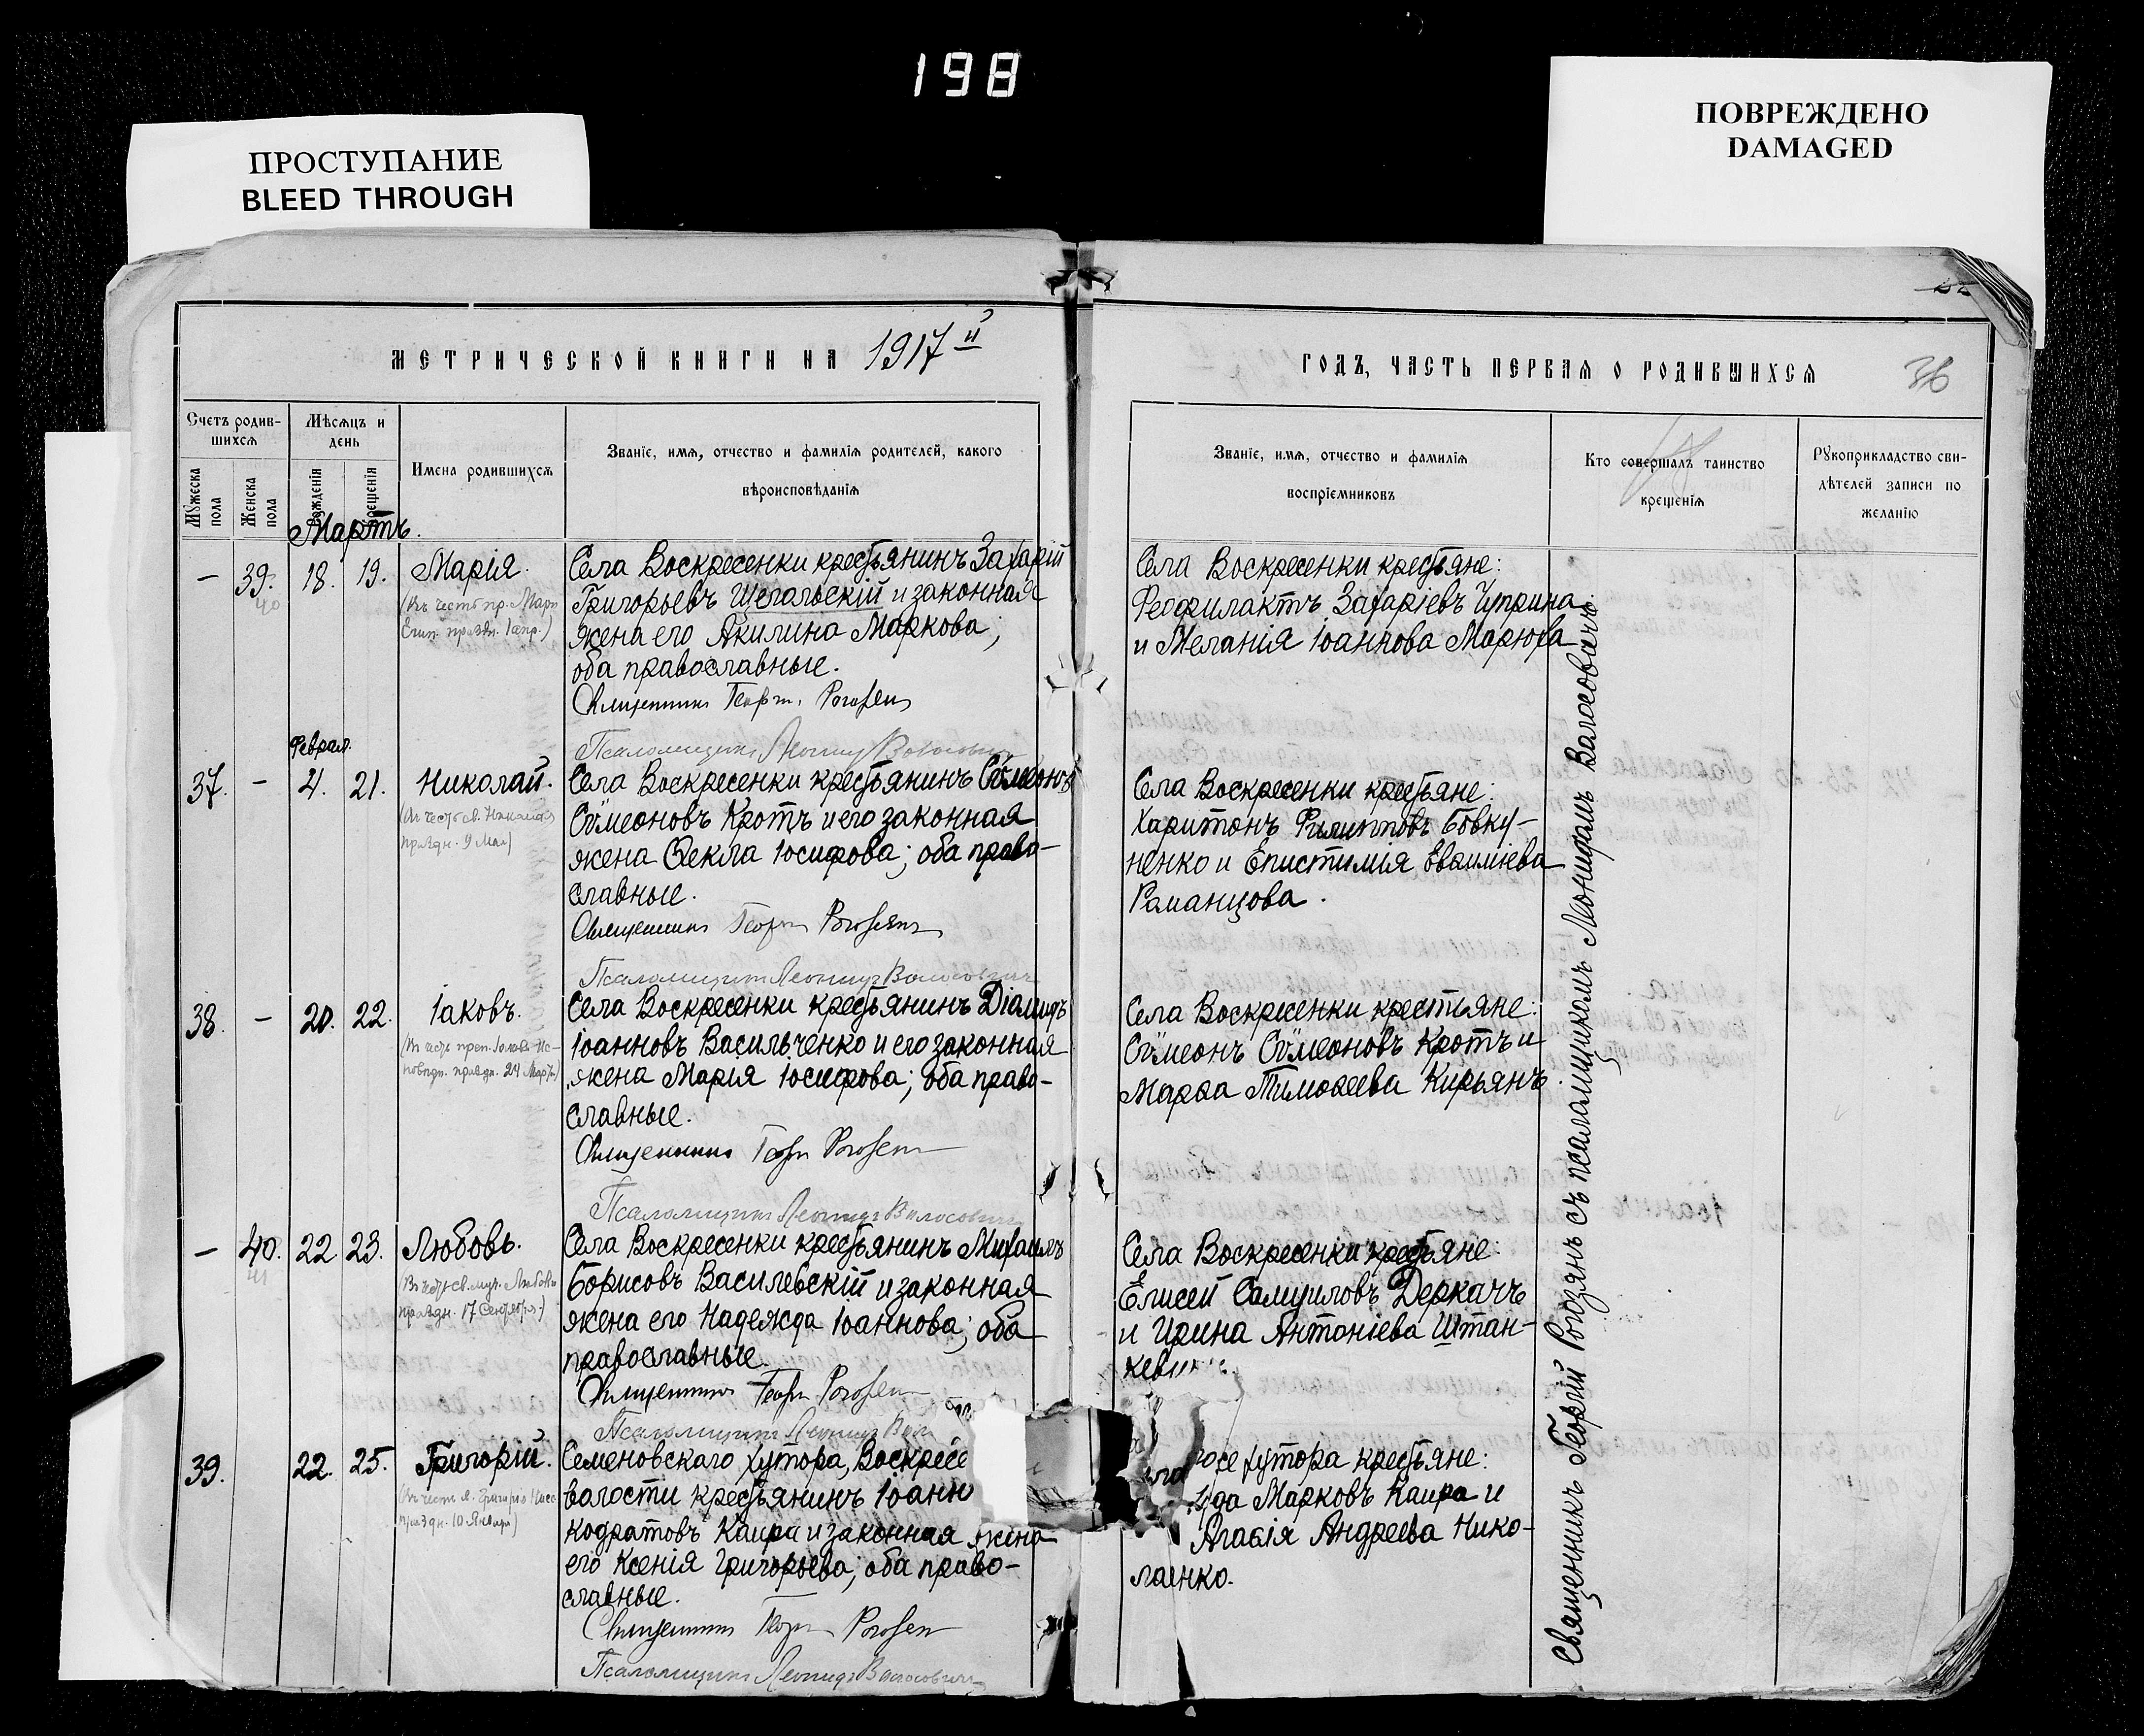 198
ПРОСТУПАНИЕ
BLEED THROUGH
ПОВРЕЖДЕНО
DAMAGED
МЕТРИЧЕСКОЙ КНИГИ НА 1917й
ГОДЪ, ЧАСТЬ ПЕРВАЯ О РОДИВШИХСЯ
36
Счетъ родив-
шихся
Мѣсяцъ и
день
Мужеска
пола
Женска
пола
Рожденія
Крещенія
Имена родившихся
Званіе, имя, отчество и фамилія родителей, какого
вѣроисповѣданія
Званіе, имя, отчество и фамилія
воспріемниковъ
Кто совершалъ таинство
крещенія
Рукоприкладство сви-
дѣтелей записи по
желанію
Мартъ.
— 39. 18. 19. Марія.
40
(Въ честь пр. Марн
Егип. праздн. 1 апр.)
Села Воскресенки крестьянинъ Захарій
Григорьевъ Щегольскій и законная
жена его Акилина Маркова;
оба православные.
Священникъ Георгій Рогозянъ
Псаломщикъ Леонидъ Волосовичъ
Села Воскресенки крестьяне:
Феофилактъ Захаріевъ Чуприна
и Меланія Іоаннова Марюха
Феврал.
37. — 4. 21. Николай.
(Въ честь св. Николая
праздн. 9 Мая)
Села Воскресенки крестьянинъ Сѵмеонъ
Сѵмеоновъ Кротъ и его законная
жена Ѳекла Іосифова; оба право-
славные.
Священникъ Георгій Рогозянъ
Псаломщикъ Леонидъ Волосовичъ
Села Воскресенки крестьяне:
Харитонъ Филипповъ Бовку-
ненко и Епистимія Евѳиміева
Раманцова.
38. — 20. 22. Іаковъ.
(Въ честь преп. Іакова Ис-
повѣдн. праздн. 24 Марта)
Села Воскресенки крестьянинъ Діамидъ
Іоанновъ Васильченко и его законная
жена Марія Іосифова; оба право-
славные.
Священникъ Георгій Рогозянъ
Псаломщикъ Леонидъ Волосовичъ
Села Воскресенки крестьяне:
Сѵмеонъ Сѵмеоновъ Кротъ и
Марѳа Тимоѳеева Кирьянъ.
— 40. 22. 23. Любовь.
41
(Въ честь св. муч. Любовь
праздн. 17 Сентября)
Села Воскресенки крестьянинъ Михаилъ
Борисовъ Василевскій и законная
жена его Надежда Іоаннова; оба
православные.
Священникъ Георгій Рогозянъ
Псаломщикъ Леонидъ Вол
Села Воскресенки крестьяне:
Елисей Самуиловъ Деркачъ
и Ирина Антоніева Штан-
кеви
39. 22. 25. Григорій.
(Въ честь св. Григорія Нисс.
праздн. 10 Января)
Семеновскаго хутора, Воскресе
валости крестьянинъ Іоанн
Кодратовъ Каира и законная жена
его Ксенія Григорьева; оба право-
славные.
Священникъ Георгій Рогозянъ
Псаломщикъ Леонидъ Волосовичъ
хутора крестьяне:
Марковъ Каира и
Агаѳія Андреева Нико-
лаенко.
Священникъ Георгій Рогозянъ съ псаломщикомъ Леонидомъ Валосовичъ.